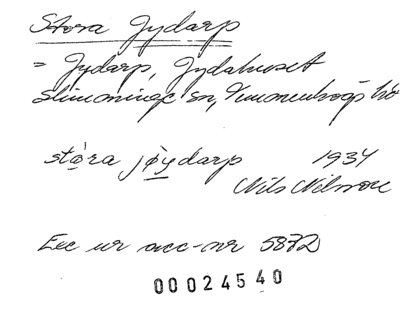 Stora Jydarp
= Jydarp, Jydahuset
Slimminge sn, Vemmenhögs hd
stora jøydarp 1934
Nils Nilsson
Exc ur acc-nr 5872
00024540